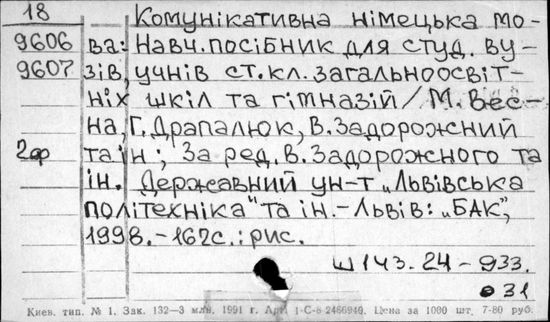 18 Комунікативна німецька мо-
9606 ва: Навч. посібник для студ. ву-
9607 зів, учнів ст. кл. загальноосвіт-
ніх шкіл та гімназій / М. Вес-
на, Г. Драпалюк, В. Задорожний
2ф та ін; За ред. В. Задорожного та
ін. Державний ун-т „Львівська
політехніка" та ін. - Львів: „БАК",
1998. - 162с. : рис.
Ш 143. 24 - 933.
031
Киев. тип. № 1. Зак. 132—3 млн. 1991 г. 1-С-6 2466940. Цена за 1000 шт. 7-80 руб.